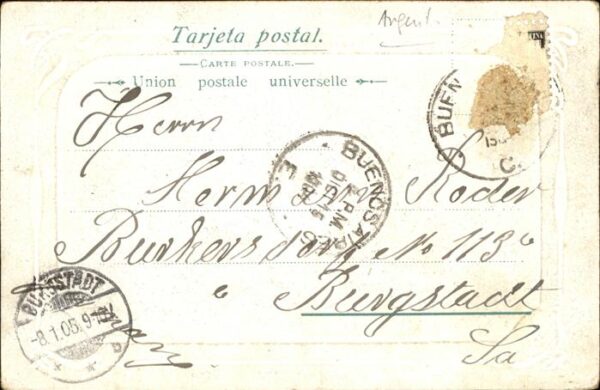 Argent.
Tarjeta postal.
CARTE POSTALE.
Union postale universelle
BUEN
C.
Herrn
Hermann Roder
BUENOS AIRES
PM.
Burkersdorf No 113c
Burgstadt
Sa
BURGSTÄDT
-8.1.05.9-